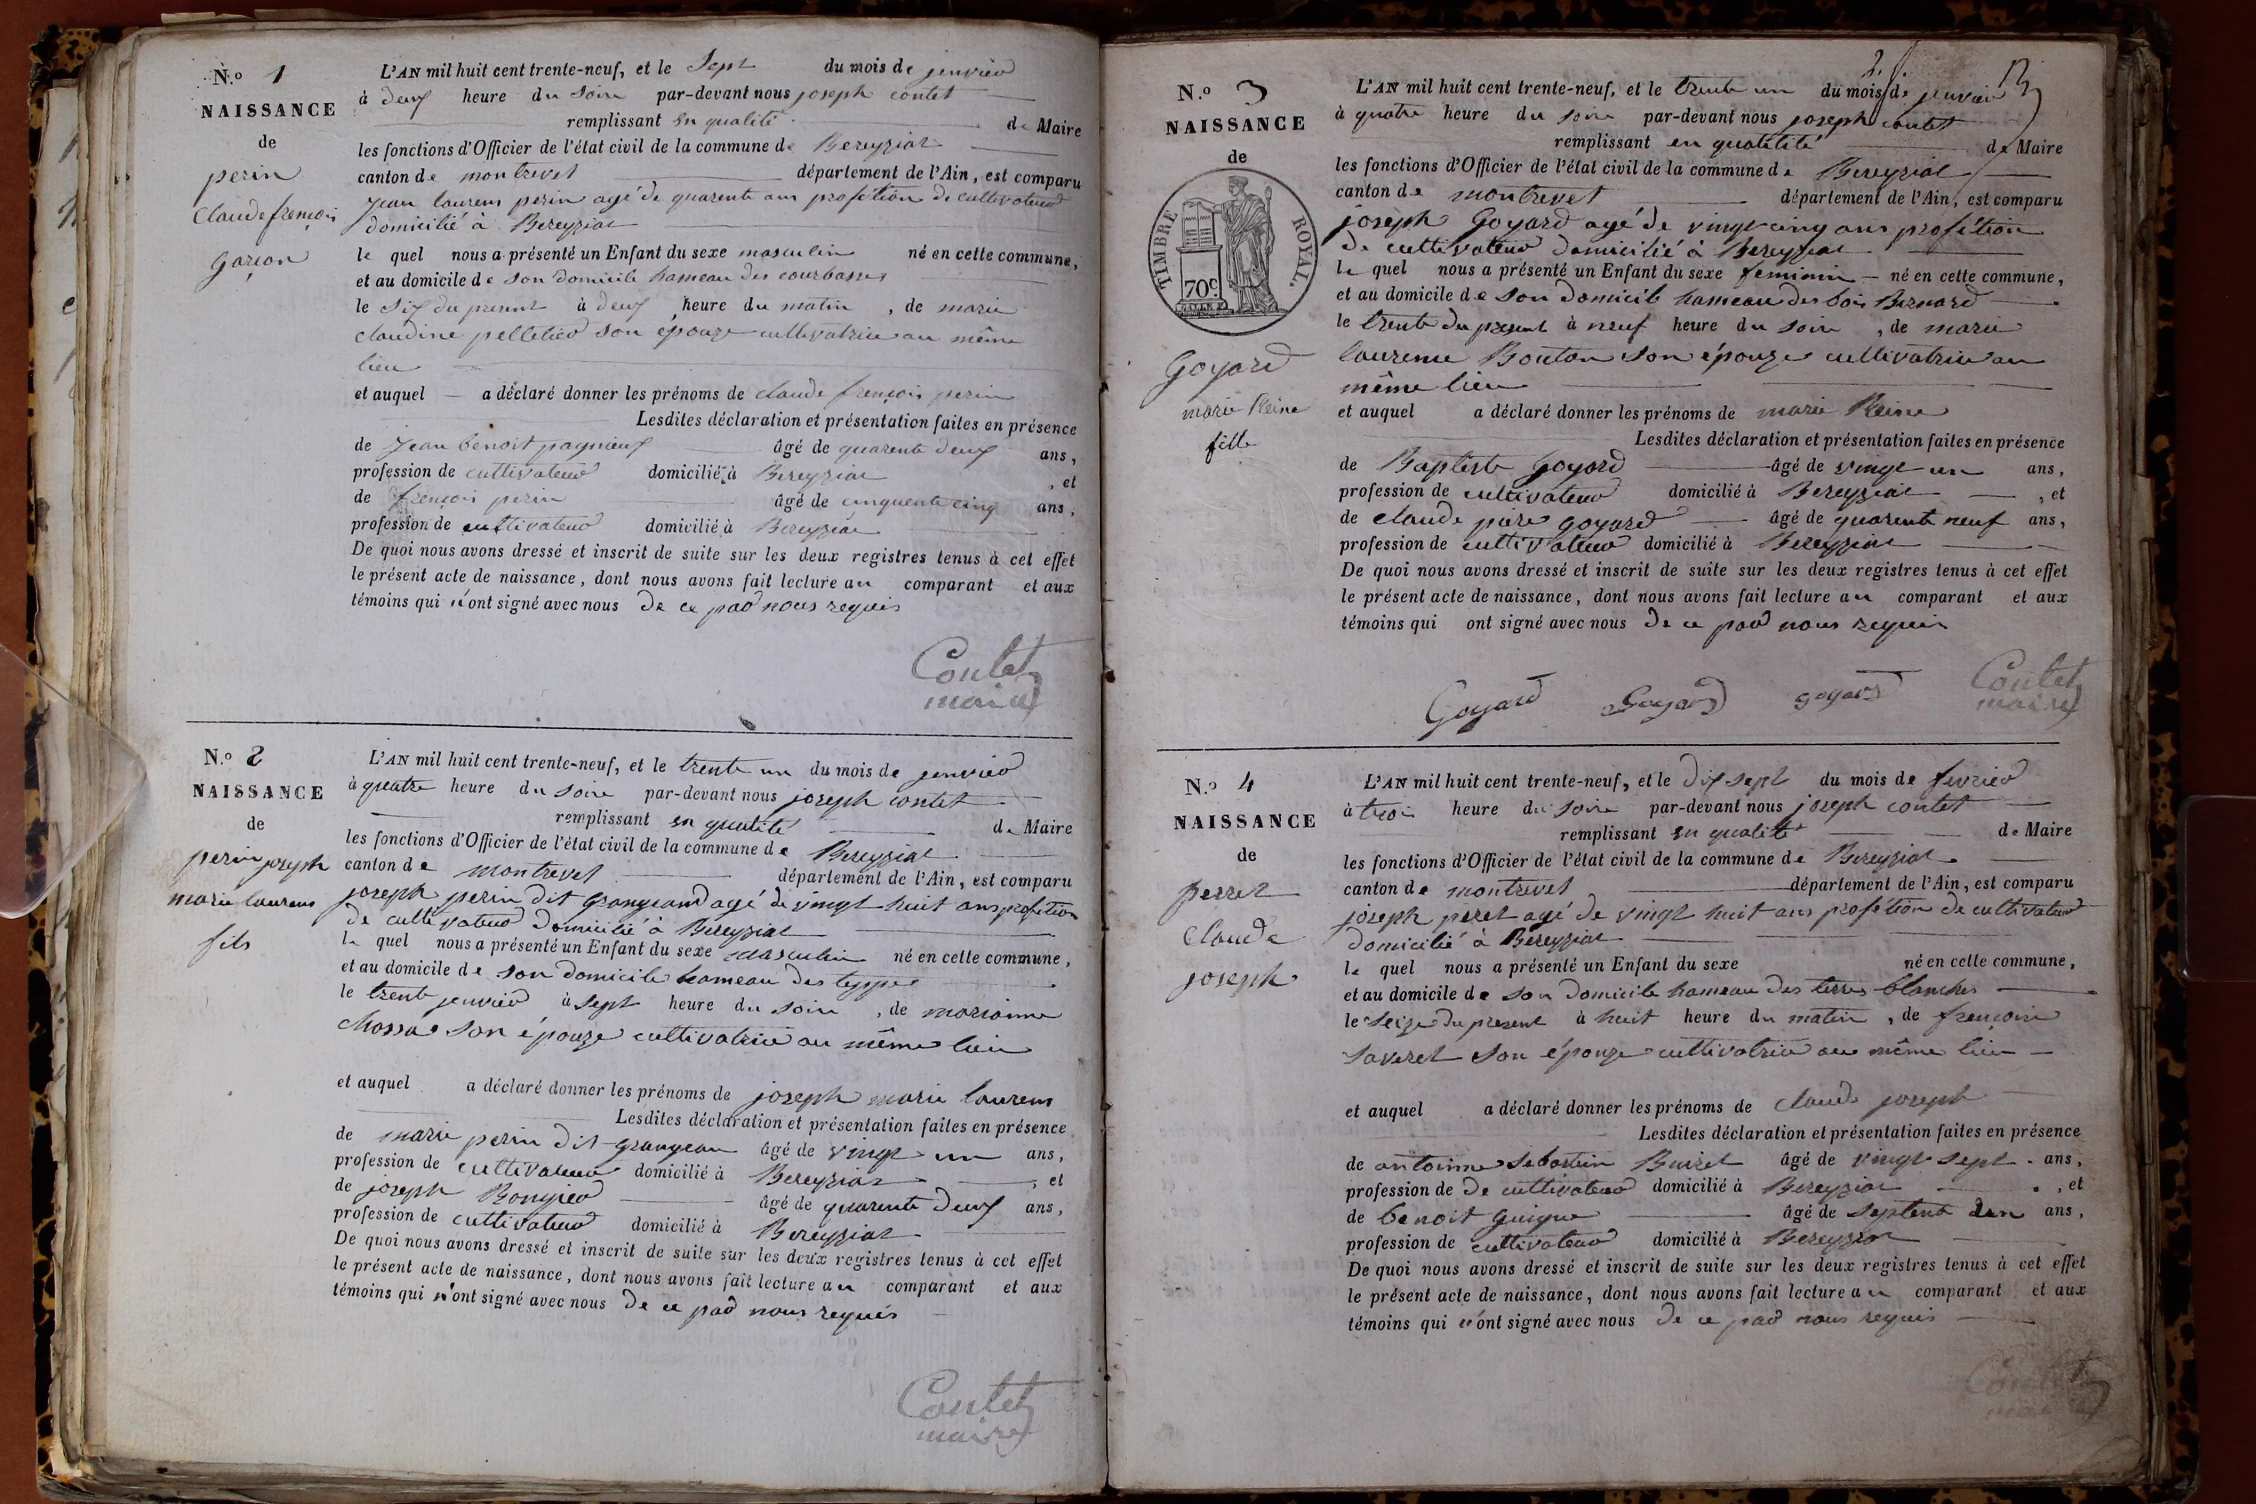 N.º 1
NAISSANCE
de
perin
Claude françois
garçon
L'AN mil huit cent trente-neuf, et le Sept du mois de jenvier
à deux heure du soire par-devant nous joseph contet
remplissant en qualité de Maire
les fonctions d'Officier de l'état civil de la commune de Bereyziat
canton de montrevet département de l'Ain, est comparu
Jean laurens perin agé de quarente ans profétion de cultivateur
domicilié à Bereyziat
le quel nous a présenté un Enfant du sexe masculin né en cette commune,
et au domicile de son domicile hameau des courbasses
le six du present à deux heure du matin, de marie
claudine pelletier son épouze cultivatrice au même
lieu
et auquel a déclaré donner les prénoms de claude françois perin
Lesdites déclaration et présentation faites en présence
de jean benoit pagneux âgé de quarente deux ans,
profession de cultivateur domicilié à Bereyziat, et
de françois perin âgé de cinquente cinq ans,
profession de cultivateur domicilié à Bereyziat
De quoi nous avons dressé et inscrit de suite sur les deux registres tenus à cet effet
le présent acte de naissance, dont nous avons fait lecture au comparant et aux
témoins qui n'ont signé avec nous de ce par nous requis
Contet
maire
N.º 2
NAISSANCE
de
perin joseph
marie laurens
fils
L'AN mil huit cent trente-neuf, et le trente un du mois de jenvier
à quatre heure du soire par-devant nous joseph contet
remplissant en qualité de Maire
les fonctions d'Officier de l'état civil de la commune de Bereyziat
canton de montrevet département de l'Ain, est comparu
joseph perin dit grangeand agé de vingt huit ans profétion
de cultivateur domicilié à Bereyziat
le quel nous a présenté un Enfant du sexe masculin né en cette commune,
et au domicile de son domicile hameau des teppes
le trente jenvier à sept heure du soire, de marianne
Mossa son épouze cultivatrice au même lieu
et auquel a déclaré donner les prénoms de joseph marie laurens
Lesdites déclaration et présentation faites en présence
de marie perin dit grangeau âgé de vingt un ans,
profession de cultivateur domicilié à Bereyziat, et
de joseph Bonjier âgé de quarente deux ans,
profession de cultivateur domicilié à Bereyziat
De quoi nous avons dressé et inscrit de suite sur les deux registres tenus à cet effet
le présent acte de naissance, dont nous avons fait lecture au comparant et aux
témoins qui n'ont signé avec nous de ce par nous requis
Contet
maire
2
N.º 3
NAISSANCE
de
TIMBRE ROYAL.
70c
Goyard
marie Reine
fille
L'AN mil huit cent trente-neuf, et le trente un du mois de jenvier
à quatre heure du soire par-devant nous joseph contet
remplissant en qualitité de Maire
les fonctions d'Officier de l'état civil de la commune de Bereyziat
canton de montrevet département de l'Ain, est comparu
joseph Goyard agé de vingt cinq ans profétion
de cultivateur domicilié à Bereyziat
le quel nous a présenté un Enfant du sexe feminin né en cette commune,
et au domicile de son domicile hameau des bois Bernard
le trente du present à neuf heure du soire, de marie
laurence Bouton son épouze cultivatrice au
même lieu
et auquel a déclaré donner les prénoms de marie Reine
Lesdites déclaration et présentation faites en présence
de Baptiste Goyard âgé de vingt un ans,
profession de cultivateur domicilié à Bereyziat, et
de claude piere goyard âgé de quarente neuf ans,
profession de cultivateur domicilié à Bereyziat
De quoi nous avons dressé et inscrit de suite sur les deux registres tenus à cet effet
le présent acte de naissance, dont nous avons fait lecture au comparant et aux
témoins qui ont signé avec nous de ce par nous requis
Goyard Goyard goyard Contet
maire
N.º 4
NAISSANCE
de
perret
Claude
joseph
L'AN mil huit cent trente-neuf, et le dix sept du mois de fevrier
à troi heure du soire par-devant nous joseph contet
remplissant en qualité de Maire
les fonctions d'Officier de l'état civil de la commune de Bereyziat
canton de montrevet département de l'Ain, est comparu
joseph peret agé de vingt huit ans profétion de cultivateur
domicilié à Bereyziat
le quel nous a présenté un Enfant du sexe né en cette commune,
et au domicile de son domicile hameau des terres blanches
le seize du present à huit heure du matin, de françoise
saveret son épouze cultivatrice au même lieu
et auquel a déclaré donner les prénoms de claude joseph
Lesdites déclaration et présentation faites en présence
de antoine sebastien Buiret âgé de vingt sept ans,
profession de de cultivateur domicilié à Bereyziat, et
de benoit guigue âgé de septente un ans,
profession de cultivateur domicilié à Bereyziat
De quoi nous avons dressé et inscrit de suite sur les deux registres tenus à cet effet
le présent acte de naissance, dont nous avons fait lecture au comparant et aux
témoins qui n'ont signé avec nous de ce par nous requis
Contet
maire